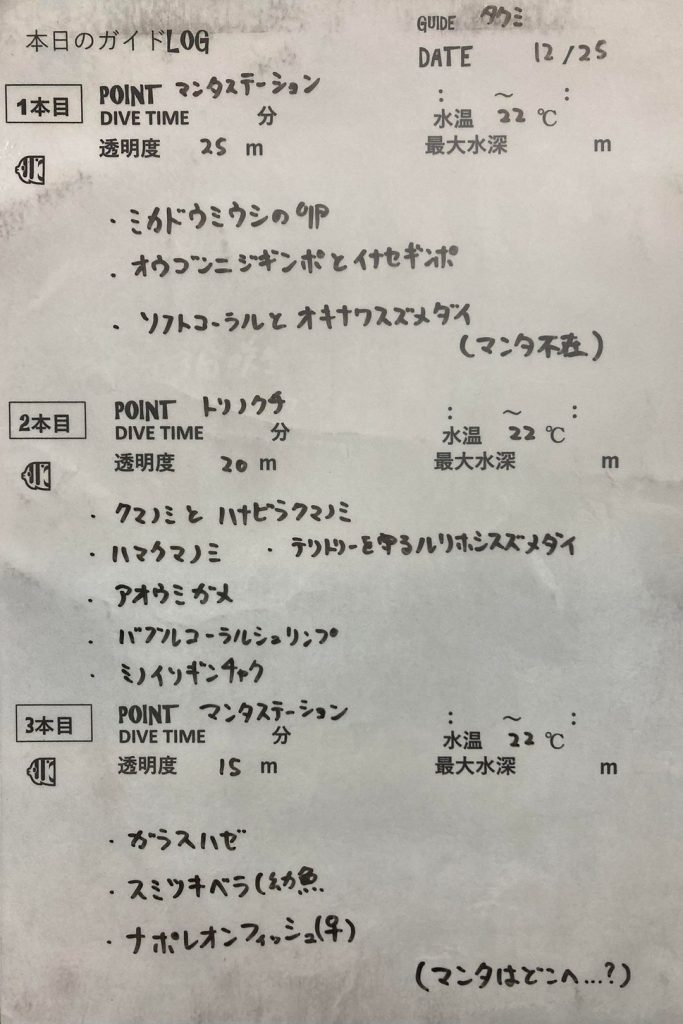 本日のガイドLOG
GUIDE タウミ
DATE 12/25
1本目
POINT マンタステーション
: ～ :
DIVE TIME 分
水温 22 ℃
透明度 25 m
最大水深 m
・ミカドウミウシの卵
・オウゴンニジギンポとイナセギンポ
・ソフトコーラルと オキナワスズメダイ
(マンタ不在)
2本目
POINT トリノクチ
: ～ :
DIVE TIME 分
水温 22 ℃
透明度 20 m
最大水深 m
・クマノミと ハナビラクマノミ
・ハマクマノミ ・テリトリーを守るルリホシスズメダイ
・アオウミガメ
・バブルコーラルシュリンプ
・ミノイソギンチャク
3本目
POINT マンタステーション
: ～ :
DIVE TIME 分
水温 22 ℃
透明度 15 m
最大水深 m
・ガラスハゼ
・スミツキベラ(幼魚
・ナポレオンフィッシュ(♀)
(マンタはどこへ...?)